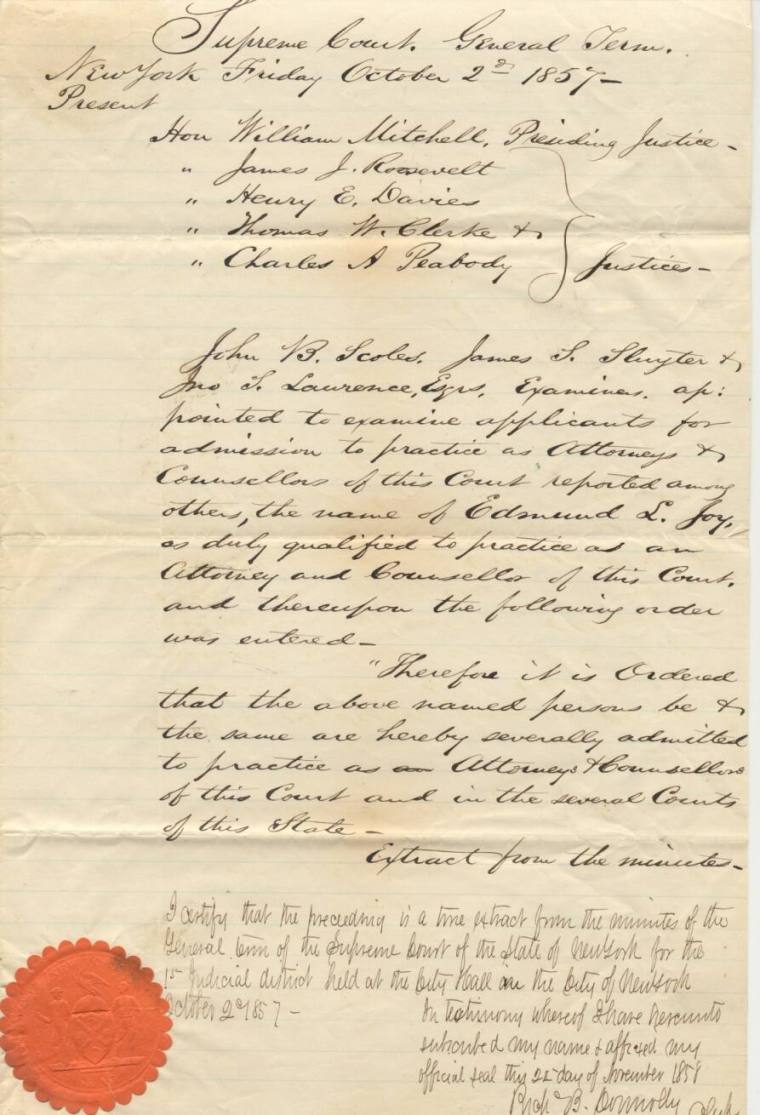 Supreme Court. General Term.
New York Friday October 2d 1857-
Present
Hon William Mitchell, Presiding Justice-
" James J. Roosevelt
" Henry E. Davies
" Thomas W. Clerke &
" Charles A Peabody
Justices-
John B. Scoles. James S. Sluyter &
Jno S. Lawrence, Esqrs. Examiners. ap:
pointed to examine applicants for
admission to practice as Attorneys &
Counsellors of this Court reported among
others, the name of Edmund L. Joy,
as duly qualified to practice as an
Attorney and Counsellor of this Court.
and thereupon the following order
was entered-
"Therefore it is Ordered
that the above named persons be &
the same are hereby severally admitted
to practice as Attorneys & Counsellors
of this Court and in the several Courts
of this State-
Extract from the minutes-
I certify that the preceeding is a true extract from the minutes of the
General term of the Supreme Court of the State of New York for the
1st Judicial district held at the City Hall in the City of New York
October 2d 1857-
In testimony whereof I have hereunto
subscribed my name & affixed my
official seal this day of November 1858
Richd B. Connolly